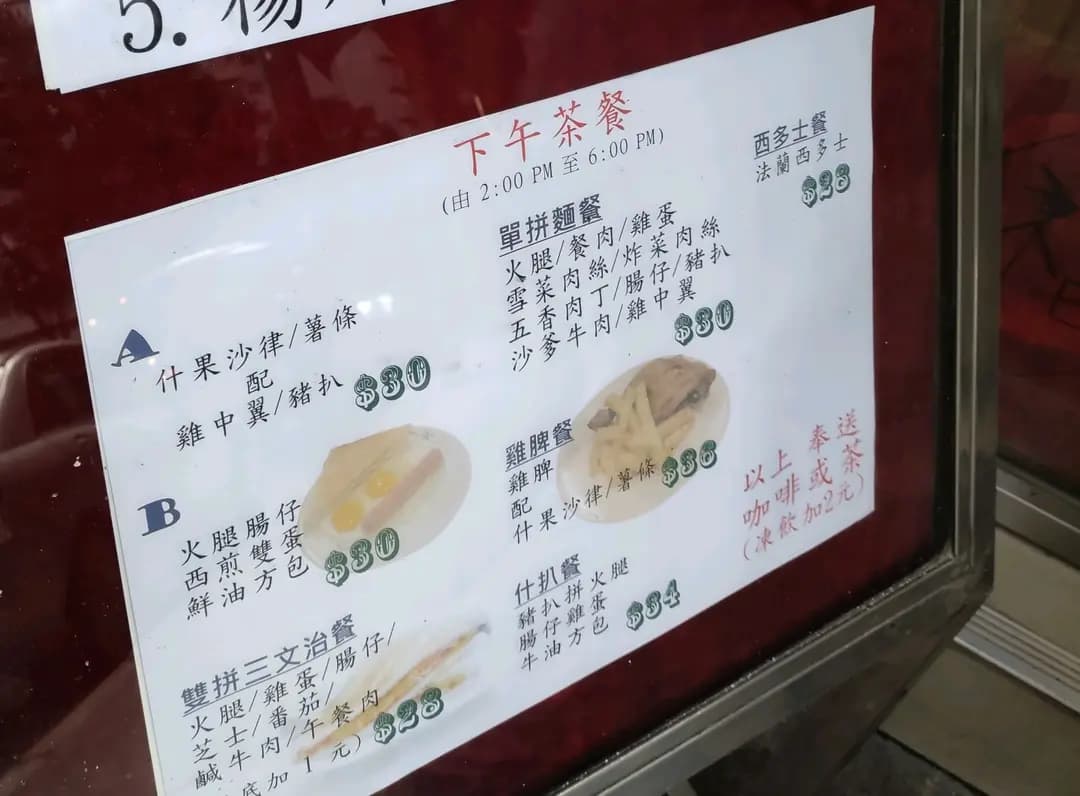 5. 楊
下午茶餐
(由 2:00 PM 至 6:00 PM)
A
什果沙律/薯條
配
雞中翼/豬扒
$30
B
火腿腸仔
西煎雙蛋
鮮油方包
$30
雙拼三文治餐
火腿/雞蛋/腸仔/
芝士/番茄/
鹹牛肉/午餐肉
底加1元)
$28
單拼麵餐
火腿/餐肉/雞蛋
雪菜肉絲/炸菜肉絲
五香肉丁/腸仔/豬扒
沙爹牛肉/雞中翼
$30
雞脾餐
雞脾
配
什果沙律/薯條
$36
什扒餐
豬扒拼火腿
腸仔雞蛋
牛油方包
$34
西多士餐
法蘭西多士
$28
以上奉送
咖啡或茶
(凍飲加2元)